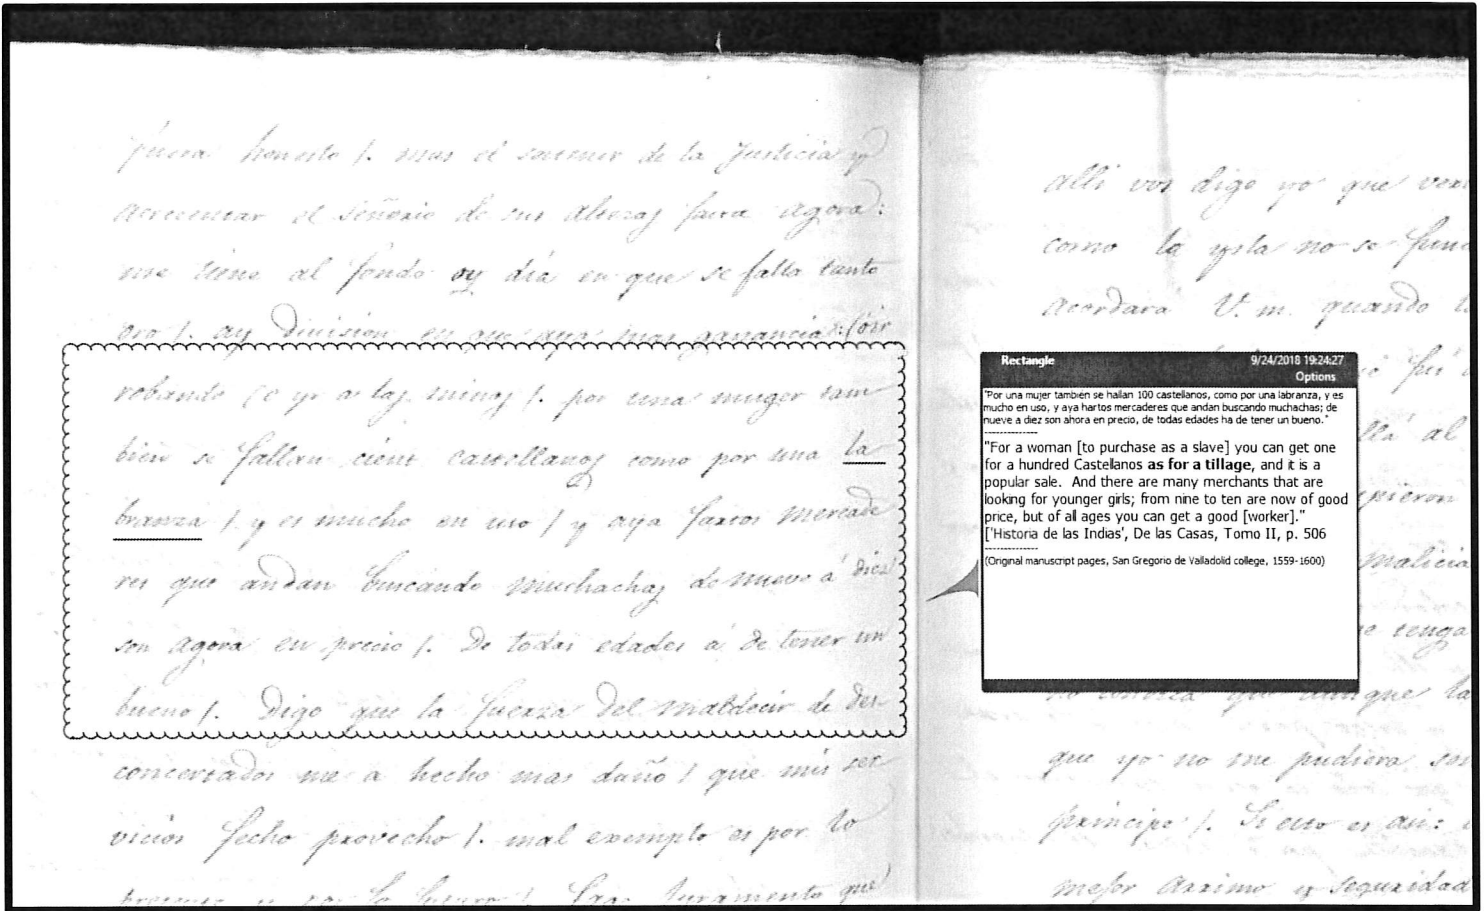 fuera honesto /. mas el sostener de la Justicia y
acrecentar el Señorio de sus altezas fasta agora:
me tiene al fondo oy dia en que se falla tanto
oro /. ay division en que aya mas ganancia: (ó ir
robando (o yr a las minas /. por una muger tam
bien se fallan cient castellanos como por una la
branza /. y es mucho en uso / y aya fartos mercade
res que andan buscando muchachas de nueve á diez
son agora en precio /. De todas edades á de tener un
bueno /. Digo que la fuerza del maldecir de des-
concertados me a hecho mas daño / que mis ser
vicios fecho provecho /. mal exemplo es por lo
presente y por lo futuro /. Fago Juramento que
alli vos digo yo que vere
como la ysla no se fun
acordará V. m. quando
Rectangle 9/24/2018 19:24:27
Options
"Por una mujer también se hallan 100 castellanos, como por una labranza, y es
mucho en uso, y aya hartos mercaderes que andan buscando muchachas; de
nueve a diez son ahora en precio, de todas edades ha de tener un bueno."
"For a woman [to purchase as a slave] you can get one
for a hundred Castellanos as for a tillage, and it is a
popular sale. And there are many merchants that are
looking for younger girls; from nine to ten are now of good
price, but of all ages you can get a good [worker]."
['Historia de las Indias', De las Casas, Tomo II, p. 506
(Original manuscript pages, San Gregorio de Valladolid college, 1559-1600)
fui
al
malicia
tenga
que la
que yo no me pudiera
principe /. Si esto es asi:
mejor arrimo y seguridad